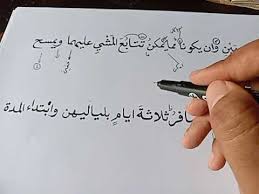 وأن يكونا مما يمكن تتابع المشي عليهما ويمسح
ثلاثة ايام بلياليهن وابتداء المدة